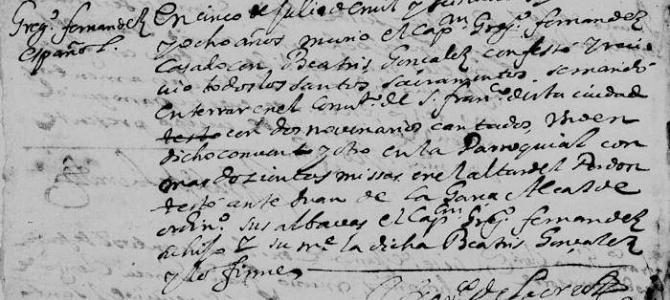 Greg.º fernandez
español.
En cinco de Julio de mil y seis.os
y ocho años murio el Cap.n Greg.º fernandez
Casado con Beatris Gonzalez confesó y reci
uio todos los santos sacramentos. se mandó
enterrar en el Conu.to de S. fran.co desta ciudad
testo con dos nouenarios cantados, Uno en
dicho conuento y otro en la Parroquial con
mas dozientas missas en el altar del Perdon
testó ante Juan de la Gara Alcalde
ordin.º sus albaceas el Cap.n Greg.º fernandez
su hijo y su m.e la dicha Beatris Gonçalez
y lo firme